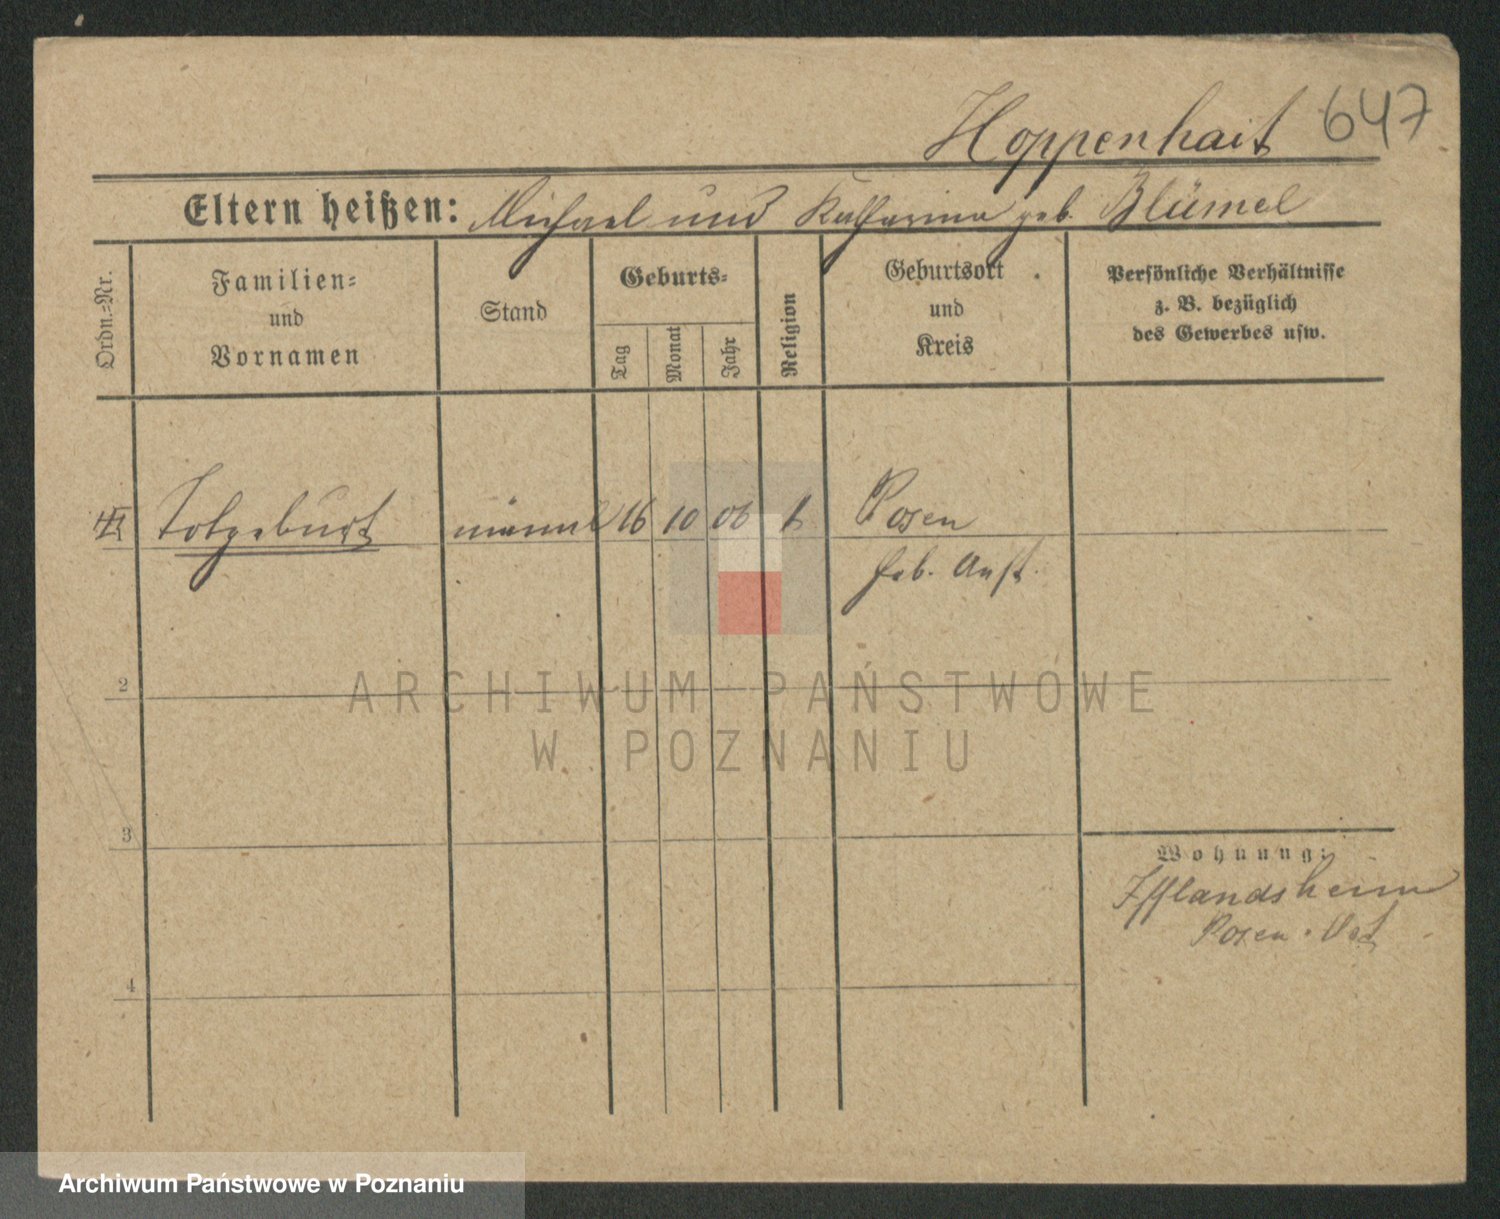 Hoppenhait 647
Eltern heißen: Michael und Katharina geb. Blümel
Ordn.=Nr.
Familien=
und
Vornamen
Stand
Geburts=
Tag
Monat
Jahr
Religion
Geburtsort
und
Kreis
Persönliche Verhältnisse
z. B. bezüglich
des Gewerbes usw.
Totgeburt männl 16 10 06 Posen
Geb. Anst.
2
3
4
Wohnung:
Ifflandsheim
Posen Ost
ARCHIWUM PAŃSTWOWE
W POZNANIU
Archiwum Państwowe w Poznaniu